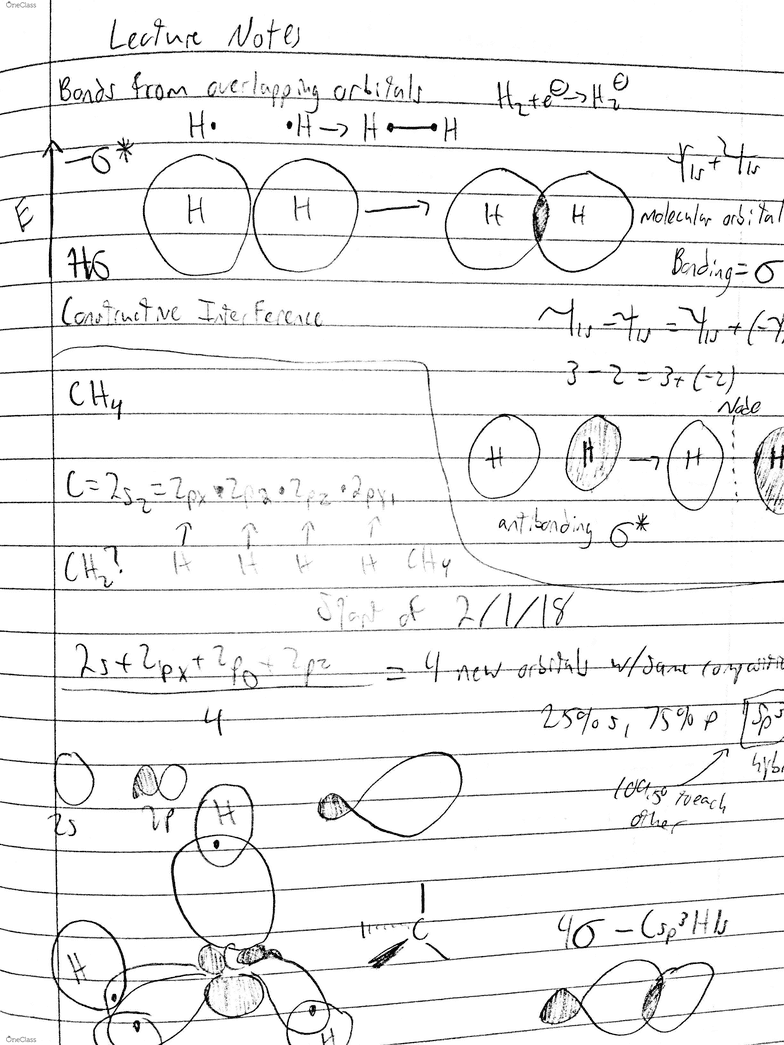 OneClass
Lecture Notes
Bonds from overlapping orbitals
H₂ + e⊖ → H₂⊖
H• •H → H •—• H
E
–σ*
H H → H H
Ψ1s + Ψ1s
molecular orbital
Hσ
Bonding = σ
Constructive Interference
Ψ1s – Ψ1s = Ψ1s + (-Ψ
3 – 2 = 3 + (-2)
Node
H H → H H
antibonding σ*
CH₄
C = 2s₂ = 2px • 2p • 2pz •
↑ ↑ ↑ ↑
CH₂? H H H H CH₄
Start of 2/1/18
2s + 2px + 2p + 2pz = 4 new orbitals w/same
4
25% s, 75% p sp³
109.5° to each
other
2s 2p
H
C
4σ – Csp³H1s
H
H
OneClass